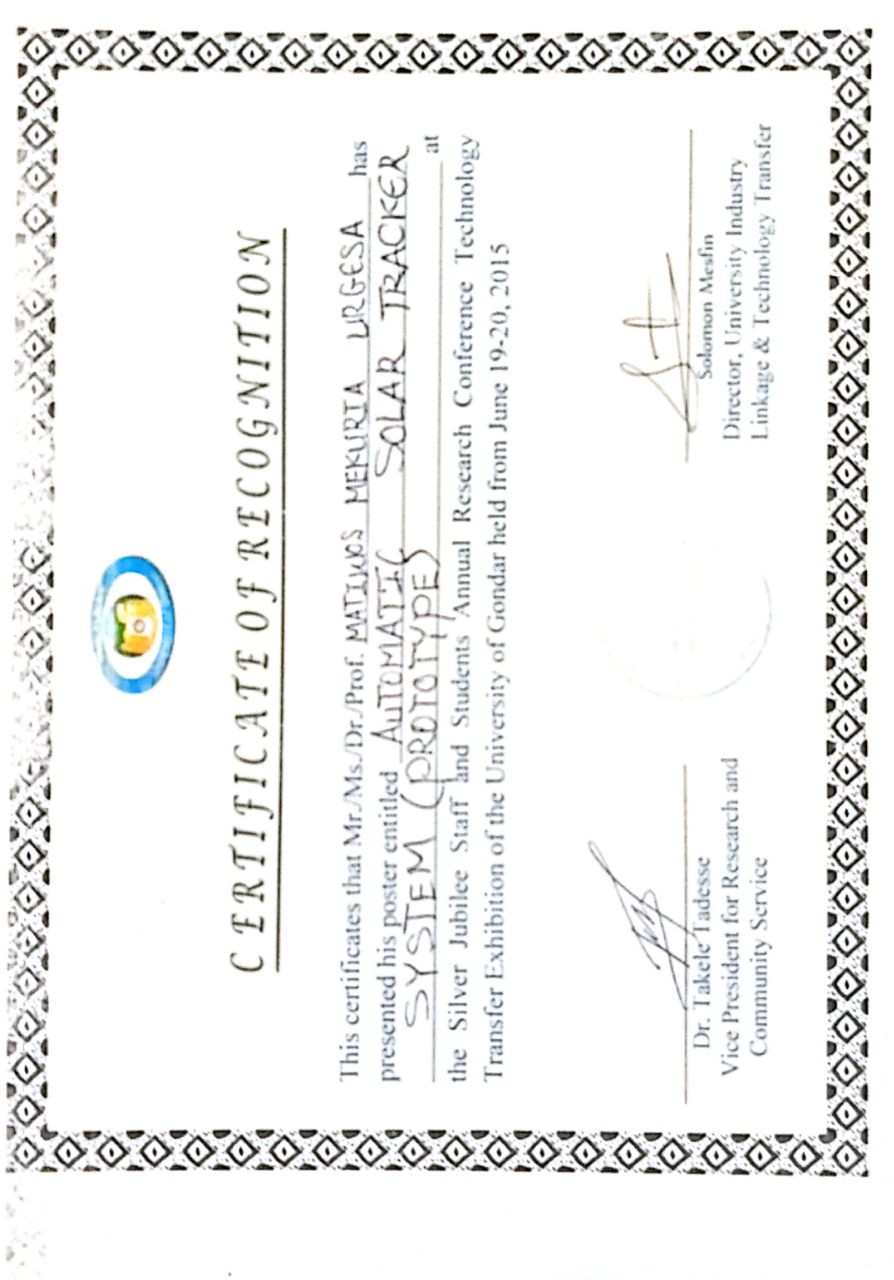 CERTIFICATE OF RECOGNITION
This certificates that Mr./Ms./Dr./Prof. MATIWOS MEKURIA URGESA has
presented his poster entitled AUTOMATIC SOLAR TRACKER
SYSTEM (PROTOTYPE) at
the Silver Jubilee Staff and Students Annual Research Conference Technology
Transfer Exhibition of the University of Gondar held from June 19-20, 2015
Dr. Takele Tadesse
Vice President for Research and
Community Service
Solomon Mesfin
Director, University Industry
Linkage & Technology Transfer